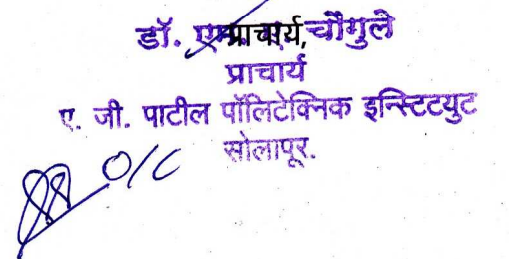 डॉ. चौगुले
प्राचार्य,
प्राचार्य
ए. जी. पाटील पॉलिटेक्निक इन्स्टिटयुट
सोलापूर.
O/C